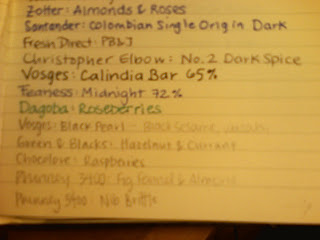 Zotter: Almonds & Roses
Santander: Colombian Single Origin Dark
Fresh Direct: PB&J
Christopher Elbow: No. 2 Dark Spice
Vosges: Calindia Bar 65%
Fearless: Midnight 72%
Dagoba: Roseberries
Vosges: Black Pearl - Black sesame, wasabi
Green & Blacks: Hazelnut & Currant
Chocolove: Raspberries
3400: Fig Fennel & Almond
3400: Nib Brittle